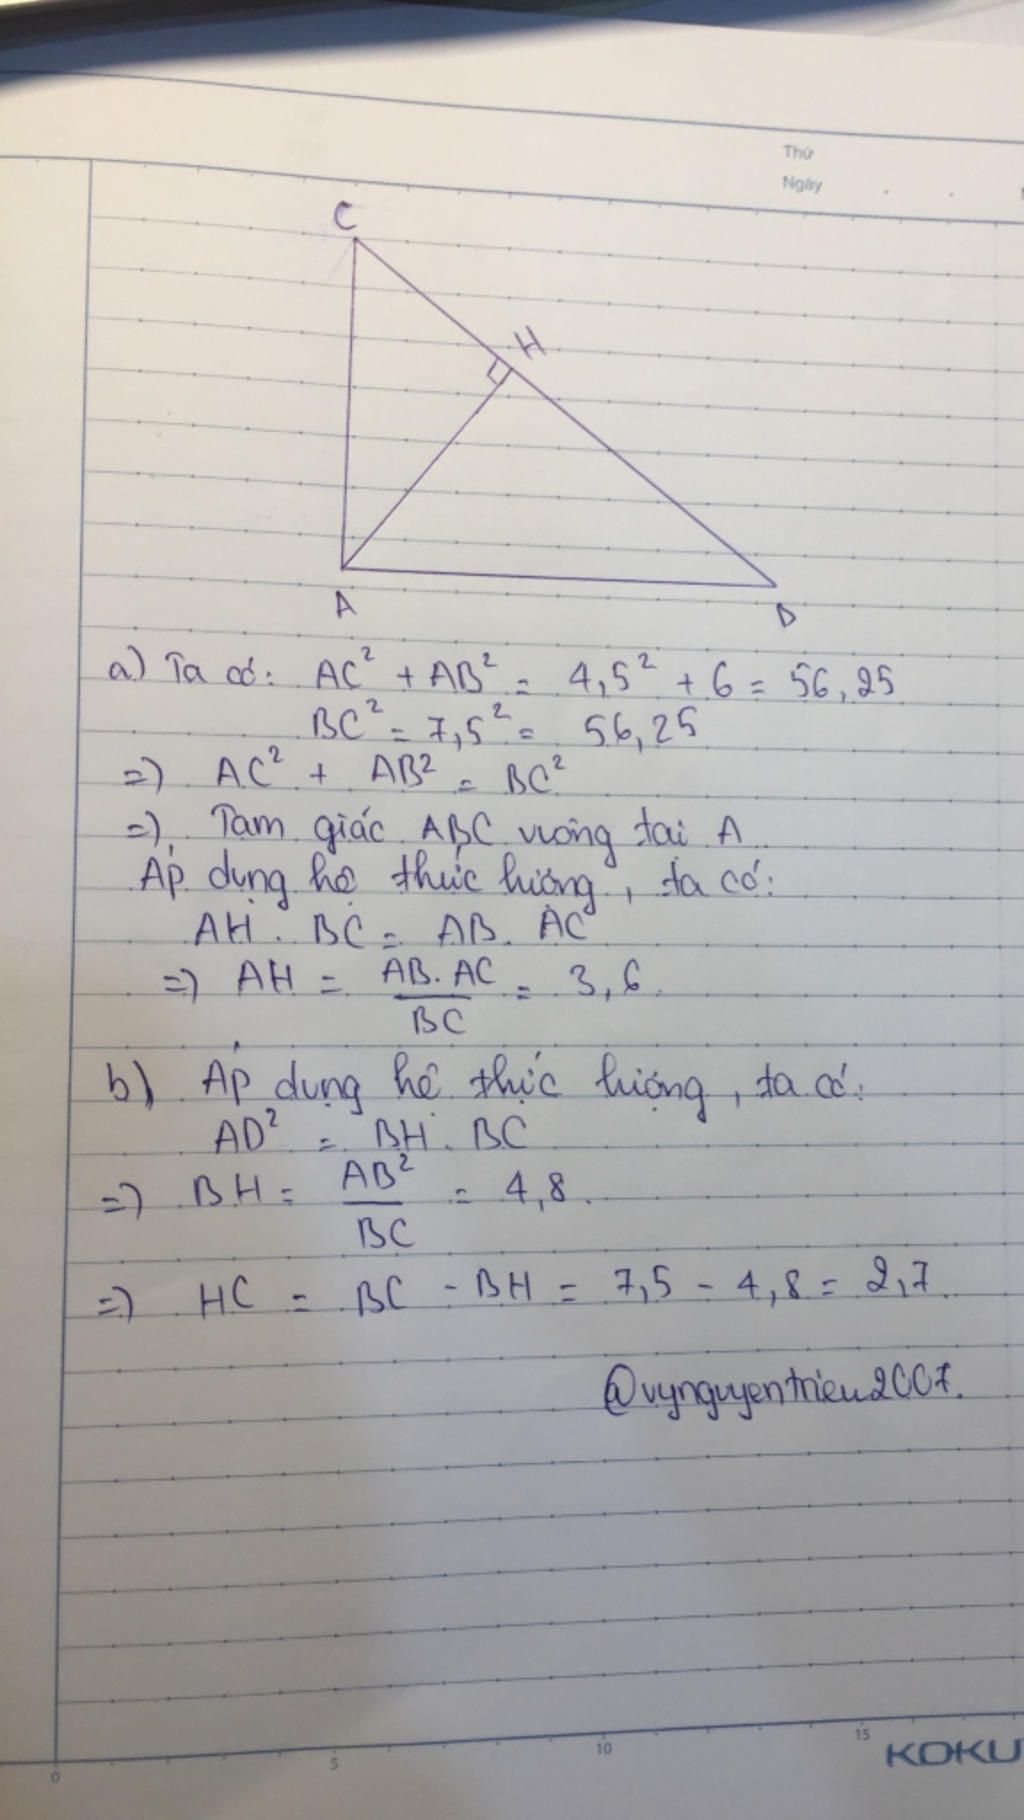 Thứ
Ngày
C
H
A
D
a) Ta có: AC² + AB² = 4,5² + 6 = 56,25
BC² = 7,5² = 56,25
=) AC² + AB² = BC²
=) Tam giác ABC vuông tai A
Áp dụng hệ thức lượng, ta có:
AH. BC = AB. AC
=) AH = AB. AC / BC = 3,6.
b) Áp dụng hệ thức lượng, ta có:
AD² = BH. BC
=) BH = AB² / BC = 4,8.
=) HC = BC - BH = 7,5 - 4,8 = 2,7.
@vynguyentrieu2007.
0 5 10 15
KOKU